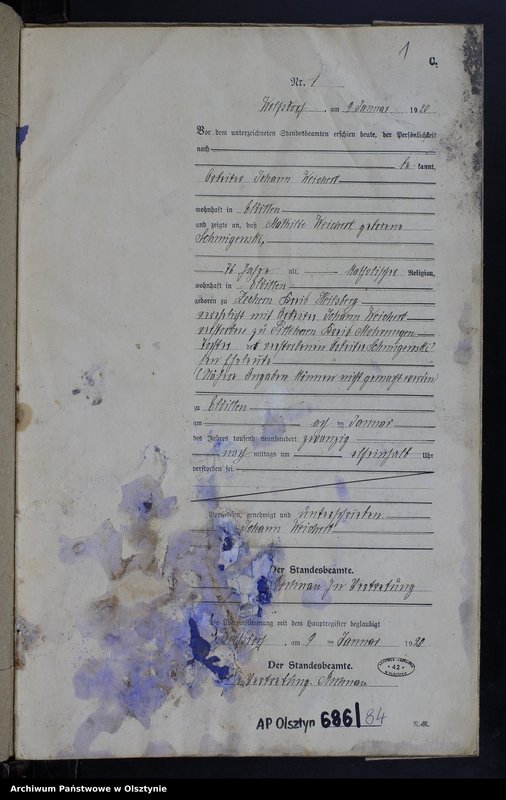 1
C.
Nr. 1
Wolfsdorf, am 9 Januar 1920
Vor dem unterzeichneten Standesbeamten erschien heute, der Persönlichkeit
nach
be kannt,
Arbeiter Johann Weichert
wohnhaft in Elditten
und zeigte an, daß Mathilde Weichert geborene
76 Jahre alt, katholischer Religion,
wohnhaft in Elditten
geboren zu Zechern Kreis Heilsberg
verehelicht mit Arbeiter Johann Weichert
verstorben zu Kreis Mohrungen
Tochter des verstorbenen Arbeiter
schen Eheleute
(Nähere Angaben können nicht gemacht werden
zu Elditten
am ten Januar
des Jahres tausend neunhundert zwanzig
nach mittags um Uhr
verstorben sei.
Vorgelesen, genehmigt und unterschrieben
Johann Weichert
Der Standesbeamte.
In Vertretung
Die Übereinstimmung mit dem Hauptregister beglaubigt
Wolfsdorf, am 9 ten Januar 1920
Der Standesbeamte.
In Vertretung
42
AP Olsztyn 686/84
Archiwum Państwowe w Olsztynie